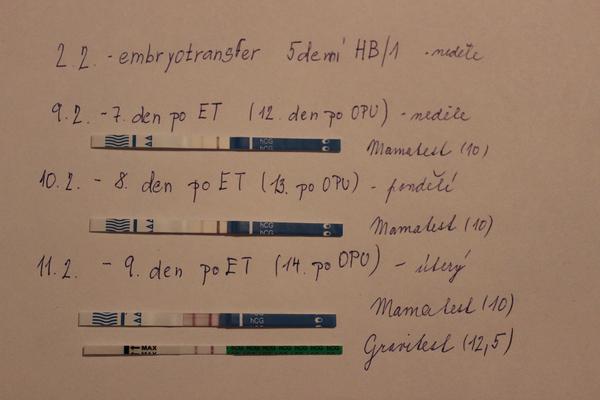 2.2. - embryotransfer 5denní HB/1 - neděle
9.2. - 7. den po ET (12. den po OPU) - neděle
hCG
hCG
Mamatest (10)
10.2. - 8. den po ET (13. po OPU) - pondělí
hCG
hCG
Mamatest (10)
11.2. - 9. den po ET (14. po OPU) - úterý
hCG
Mamatest (10)
MAX
MAX
Gravitest (12,5)